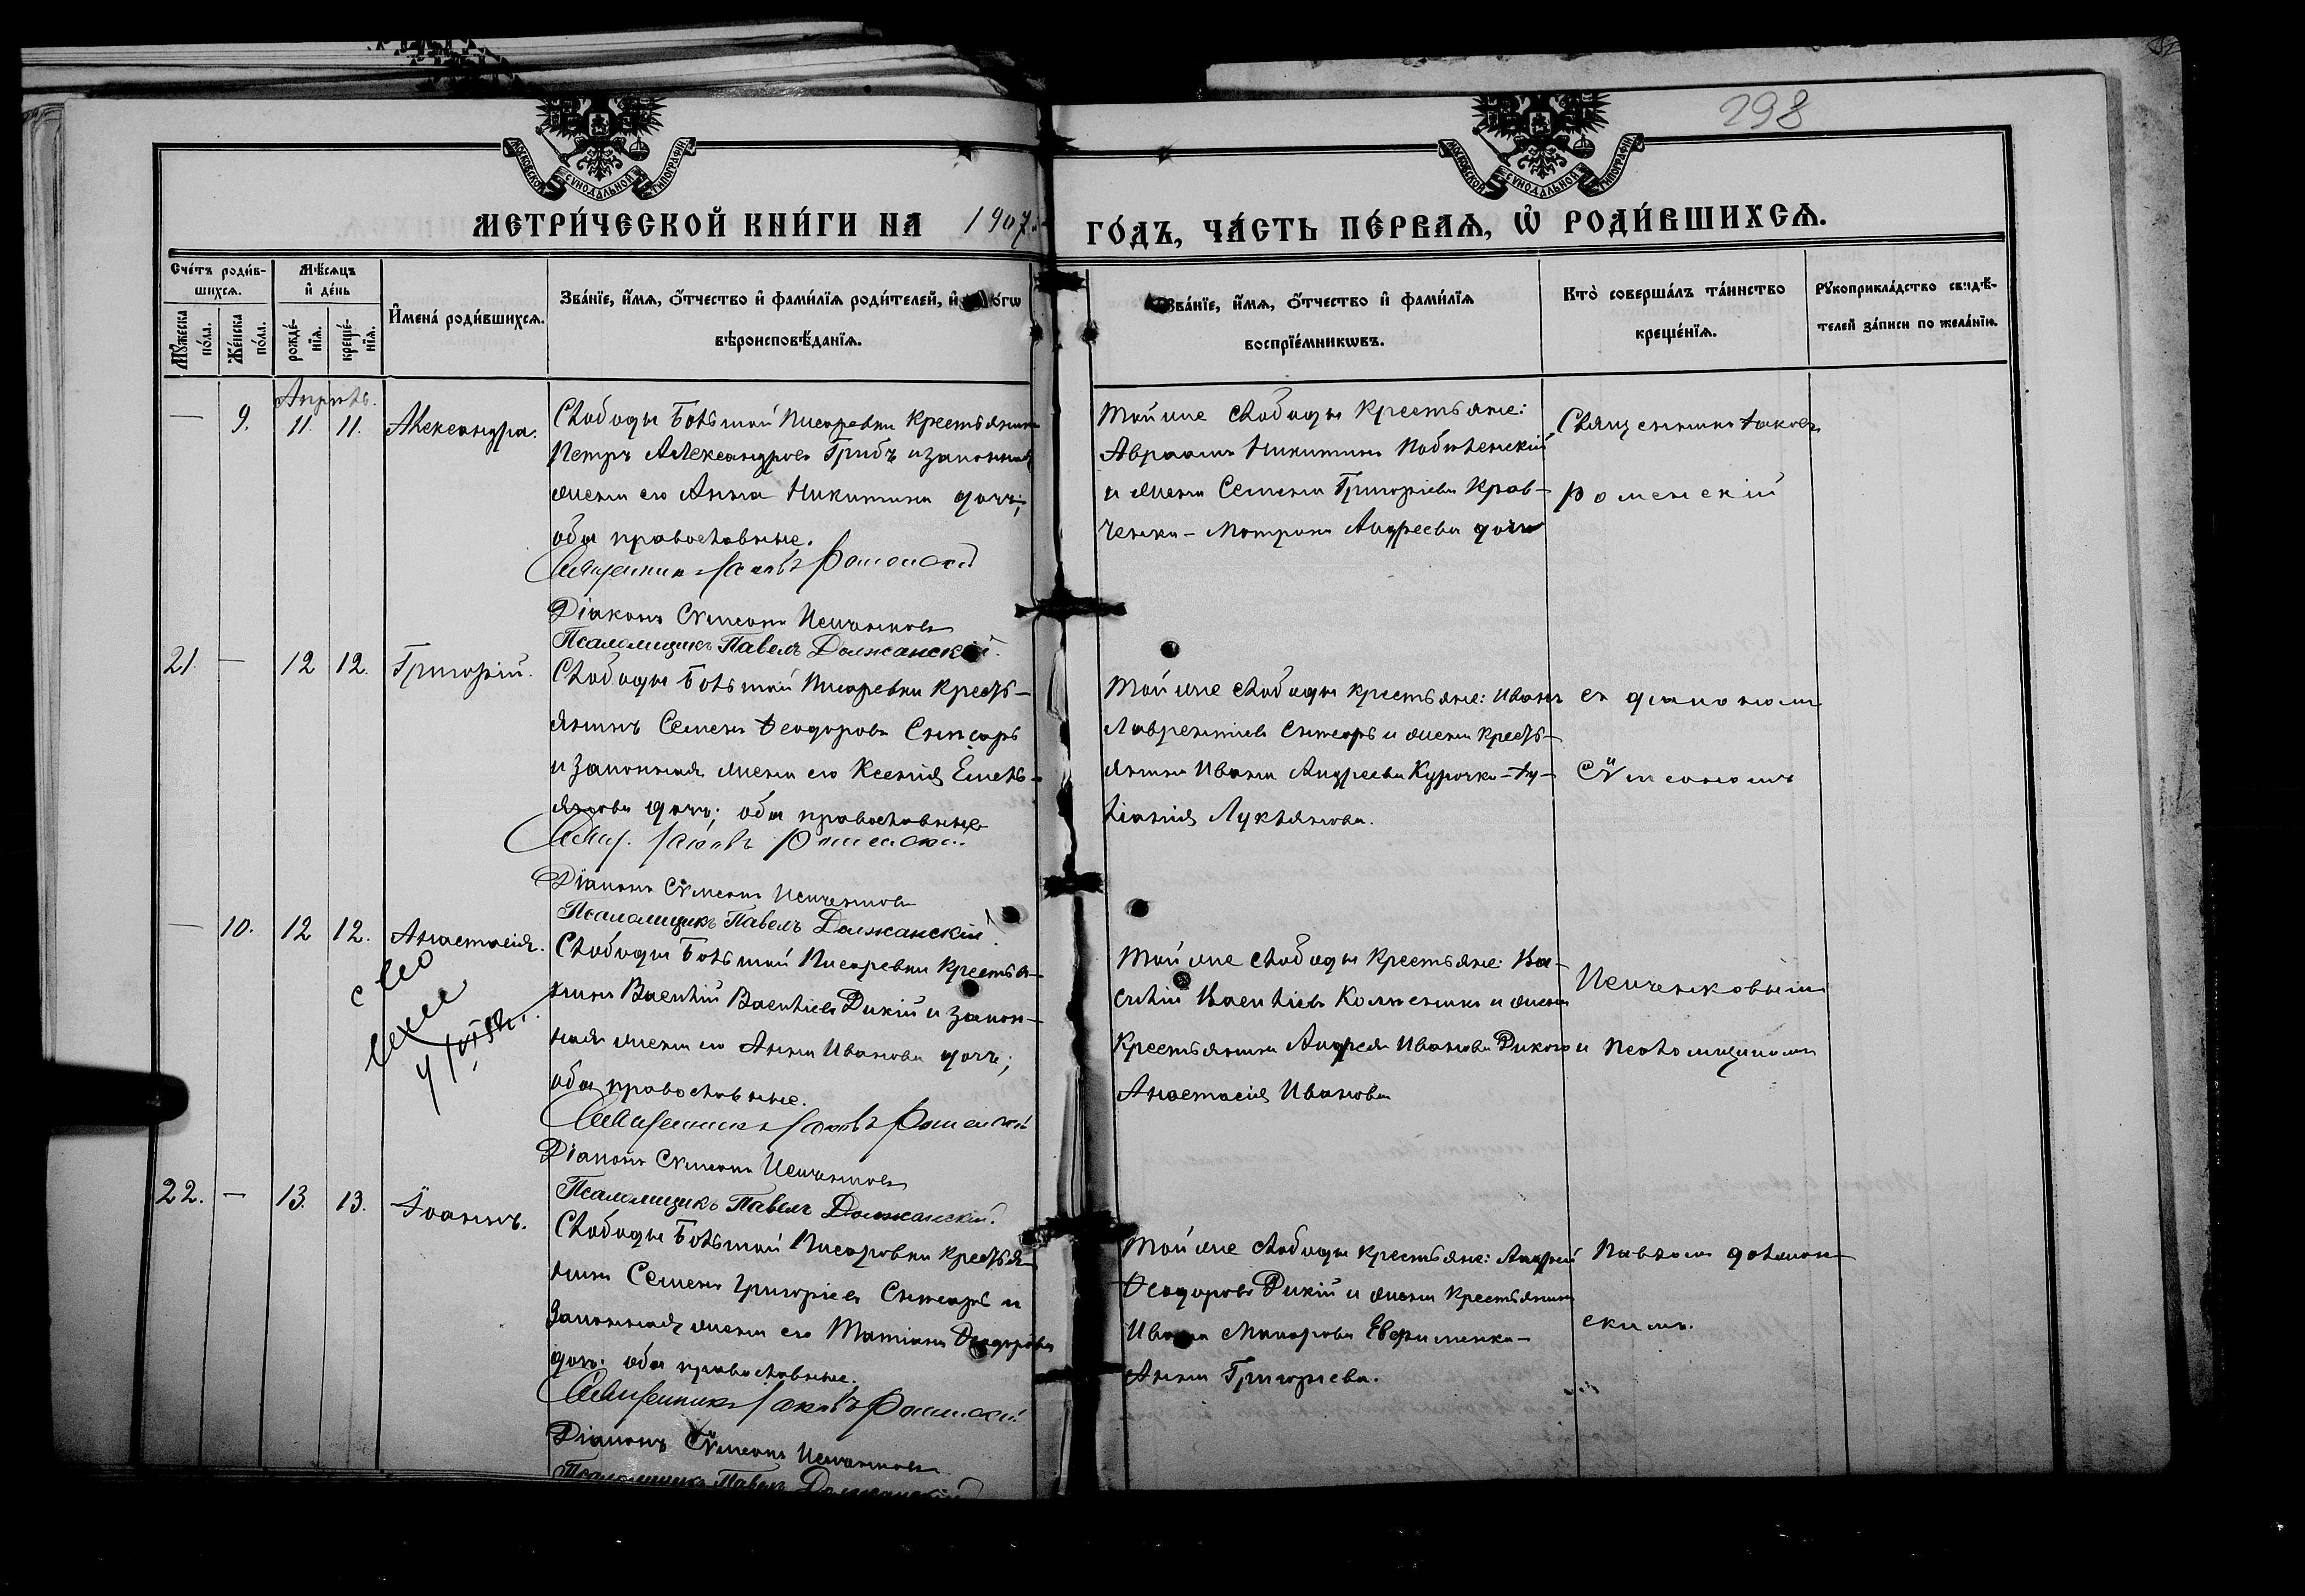 298
МОСКОВСКОЙ СѴНОДАЛЬНОЙ ТИПОГРАФІИ
МОСКОВСКОЙ СѴНОДАЛЬНОЙ ТИПОГРАФІИ
МЕТРИ́ЧЕСКОЙ КНИ́ГИ НА 1907
ГО́ДЪ, ЧА́СТЬ ПЕ́РВАѦ, Ѡ҆ РОДИ́ВШИХСѦ.
Сче́тъ роди́вшихсѧ.
Мѣ́сѧцъ и҆ де́нь
Мꙋ́жеска по́ла.
Же́нска по́ла.
рожде́нїѧ.
креще́нїѧ.
И҆мена̀ роди́вшихсѧ.
Зва́нїе, и҆́мѧ, ѻ҆́тчество и҆ фами́лїѧ роди́телей, и҆
вѣроисповѣ́данїѧ.
Зва́нїе, и҆́мѧ, ѻ҆́тчество и҆ фами́лїѧ
воспрїе́мникѡвъ.
Кто̀ соверша́лъ та́инство
креще́нїѧ.
Рꙋкоприкла́дство свидѣ́-
телей за́писи по жела́нїю.
Апрѣль.
— 9. 11. 11. Александра.
Слободы Большой Писаревки крестьянинъ
Петръ Александровъ Грибъ и законная
жена его Анна Никитина дочь;
оба православные.
Священникъ Іаковъ Роменскій
Діаконъ Сѵмеонъ
Псаломщикъ Павелъ Должанскій.
Той же слободы крестьяне:
Авраамъ Никитинъ
и жена Семена Григоріева Крав-
ченка - Матрона Андреева дочь
Священникъ Іаковъ
Роменскій
21. — 12 12. Григорій.
Слободы Большой Писаревки кресть-
янинъ Семенъ Ѳеодоровъ Снѣсарь
и законная жена его Ксенія Емель-
янова дочь; оба православные
Свящ. Іаковъ Роменскій
Діаконъ Сѵмеонъ
Псаломщикъ Павелъ Должанскій
Той же слободы крестьяне: Иванъ
Лаврентіевъ Снѣсарь и жена кресть-
янина Ивана Андреева Курочки - Іу-
ліанія Лукьянова.
съ діакономъ
Сѵмеономъ
— 10. 12 12. Анастасія.
Слободы Большой Писаревки крестья-
нинъ Василій Васильевъ Дикій и закон-
ная жена его Анна Иванова дочь;
оба православные.
Священникъ Іаковъ Роменскій
Діаконъ Сѵмеонъ
Псаломщикъ Павелъ Должанскій.
Той же слободы крестьяне: Ва-
силій Васильевъ и жена
крестьянина Андрея Иванова Дикого
Анастасія Иванова
и псаломщикомъ
22. — 13. 13. Іоаннъ.
Слободы Большой Писаревки крестья-
нинъ Семенъ Григоріевъ Снѣсарь и
законная жена его Татіана Ѳеодорова
дочь. оба православные.
Священникъ Іаковъ Роменскій
Діаконъ Сѵмеонъ
Псаломщикъ Павелъ Должанскій
Той же слободы крестьяне: Андрей
Ѳеодоровъ Дикій и жена крестьянина
Ивана Макарова Евфименка -
Анна Григорьева.
Павломъ Должан-
скимъ.